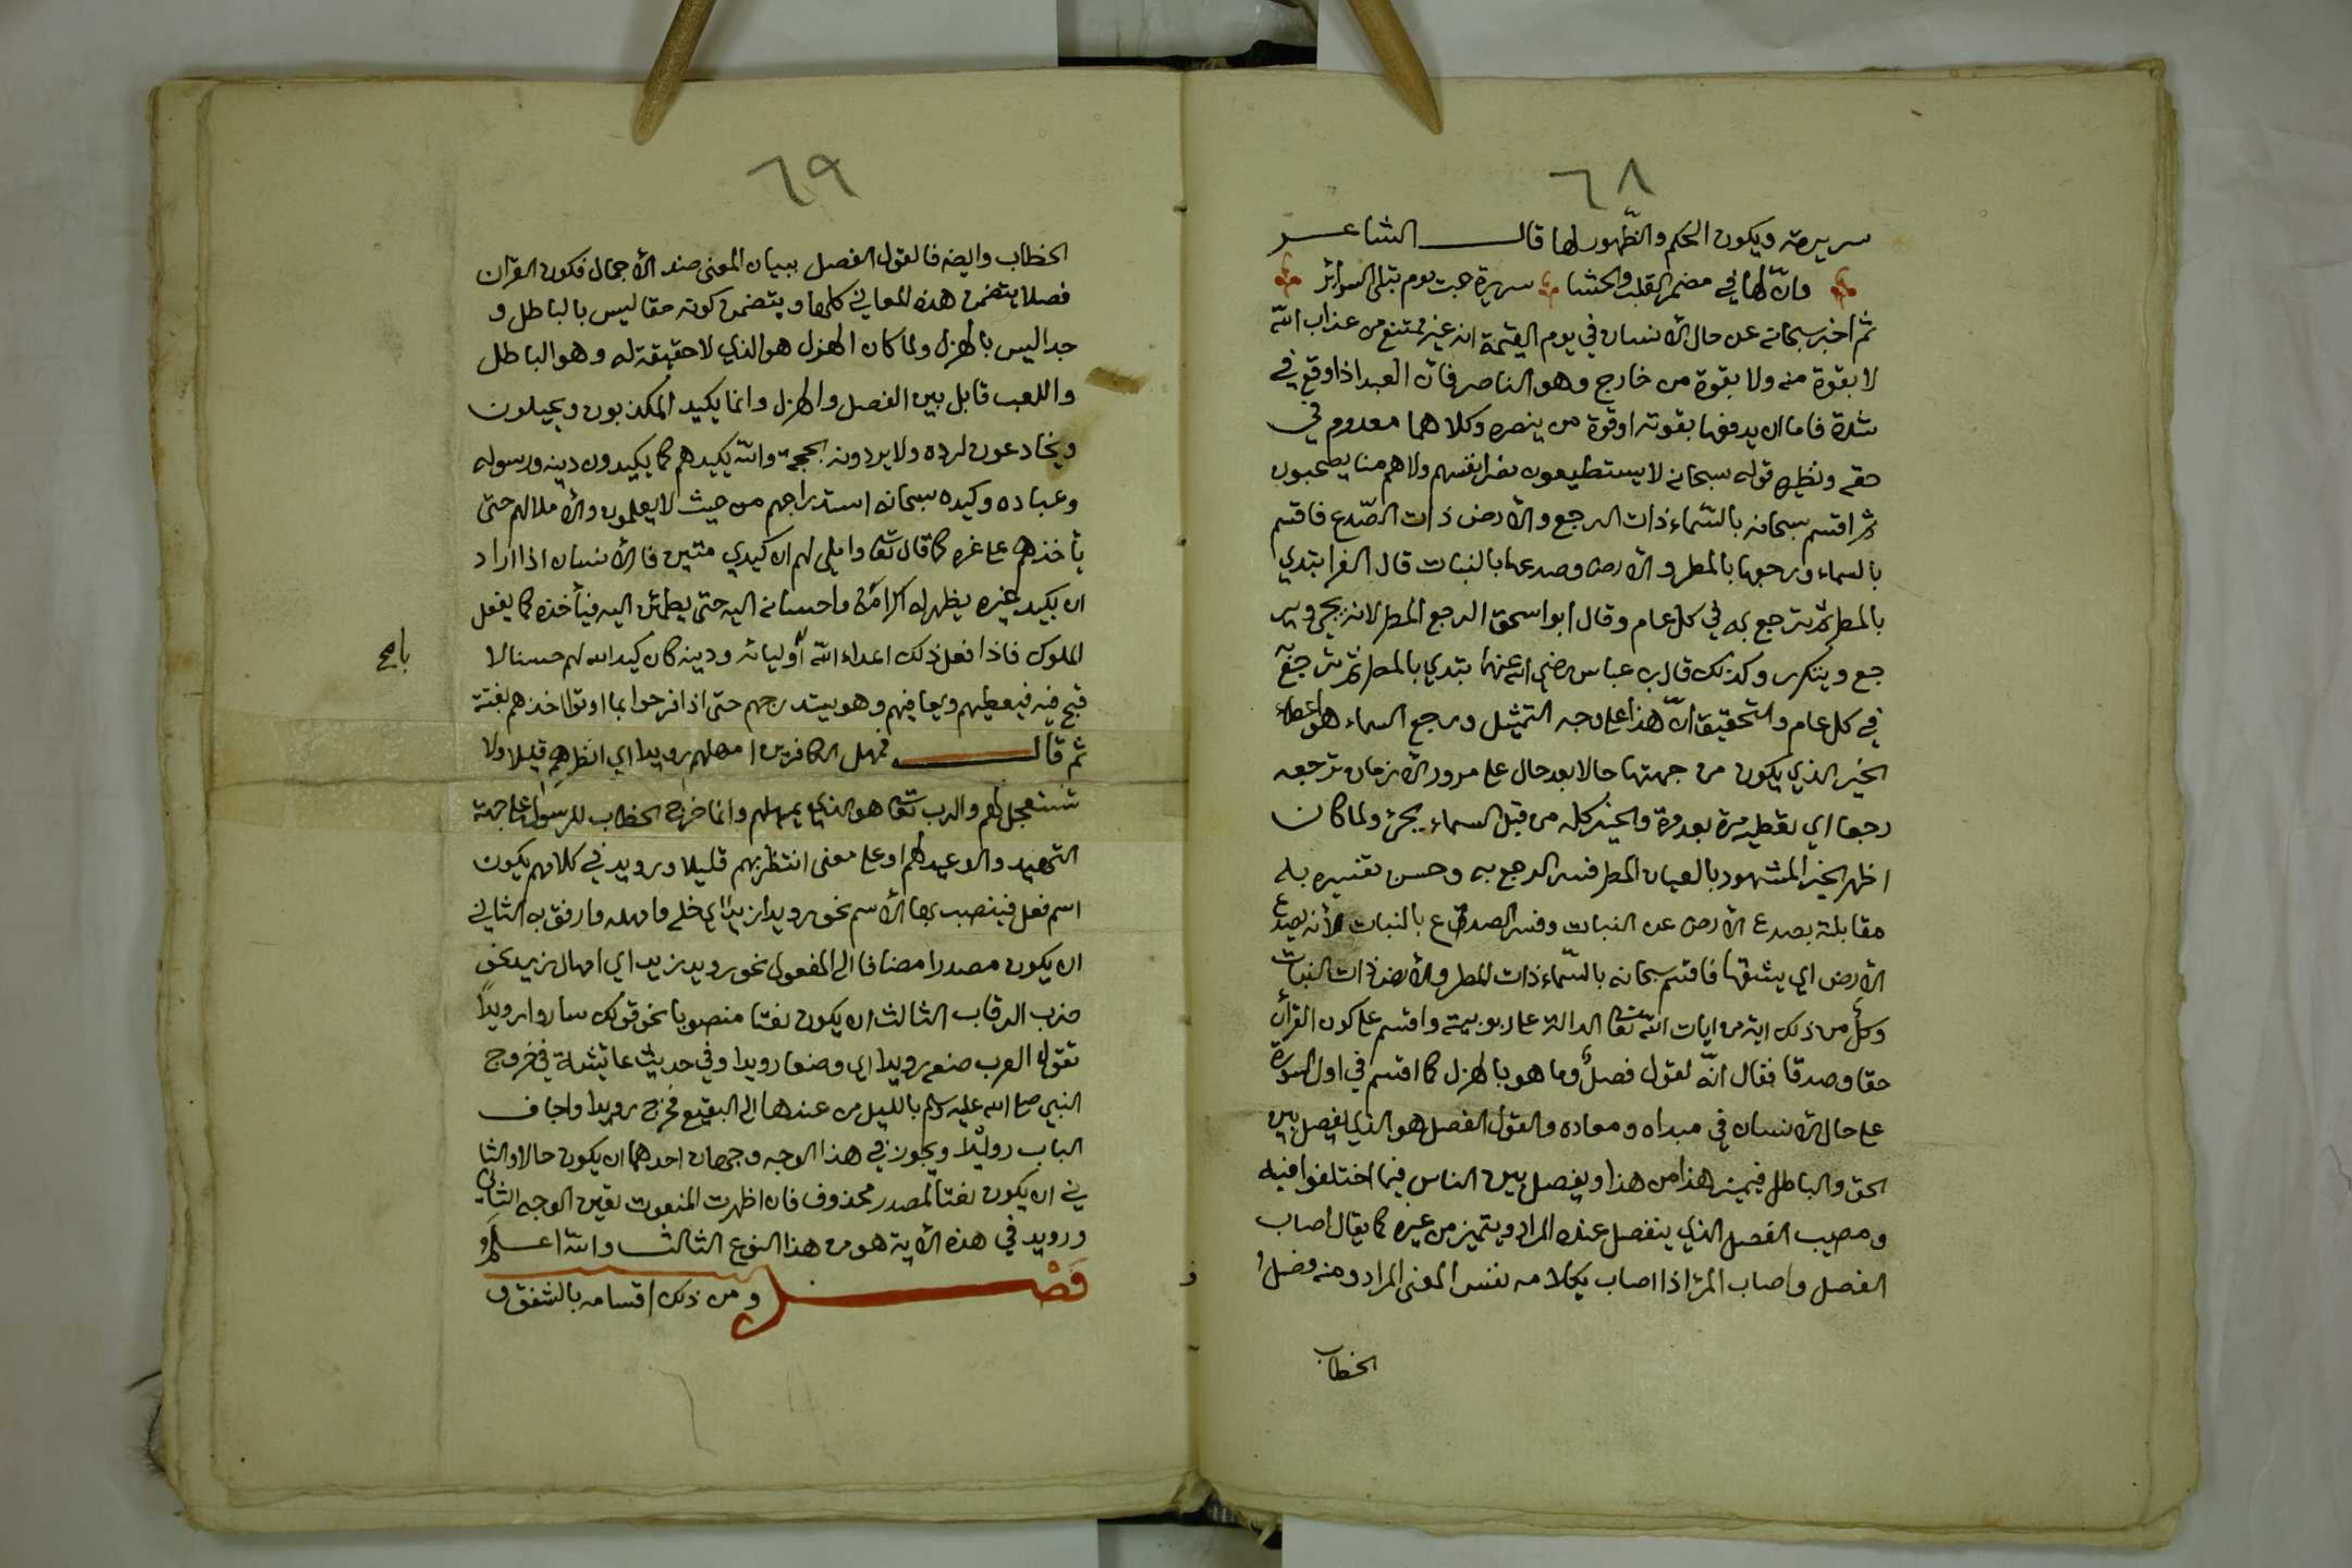 ٦٨
سريرته ويكون الحكم والظهور لها قال الشاعر
وان لها في مضمر القلب والحشا سريرة حب يوم تبلى السرائر
ثم اخبر سبحانه عن حال الانسان في يوم القيمة انه غير ممتنع من عذاب الله
لا بقوة منه ولا بقوة من خارج وهو الناصر فان العبد اذا وقع في
شدة فاما ان يدفعها بقوته او قوة من ينصره وكلاهما معدوم في
حقه ونظيره قوله سبحانه لا يستطيعون نصر انفسهم ولا هم منا يصحبون
ثم اقسم سبحانه بالسماء ذات الرجع والارض ذات الصدع فاقسم
بالسماء ورجعها بالمطر والارض وصدعها بالنبات قال الفرا تبتدي
بالمطر ثم ترجع به في كل عام وقال ابو اسحق الرجع المطر لانه يجي وير
جع ويتكرر وكذلك قال ابن عباس رضي الله عنهما تبتدي بالمطر ثم ترجع به
في كل عام والتحقيق ان هذا على وجه التمثيل ورجع السماء هو اعطاء
الخير الذي يكون من جهتها حالا بعد حال على مرور الازمان ترجعه
رجعا اي تعطيه مرة بعد مرة والخير كله من قبل السماء يجئ ولما كان
اظهر الخير المشهود بالعيان المطر فسر الرجع به وحسن تفسيره به
مقابلته بصدع الارض عن النبات وفسر الصدع بالنبات لانه يصدع
الارض اي يشقها فاقسم سبحانه بالسماء ذات المطر والارض ذات النبات
وكل من ذلك اية من ايات الله تعا الدالة على ربوبيته واقسم على كون القرآن
حقا وصدقا فقال انه لقول فصل وما هو بالهزل كما اقسم في اول السورة
على حال الانسان في مبداه ومعاده والقول الفصل هو الذي يفصل بين
الحق والباطل فيميز هذا من هذا ويفصل بين الناس فيما اختلفوا فيه
ومصيب الفصل الذي ينفصل عنده المراد ويتميز من غيره كما يقال اصاب
الفصل واصاب المرّ اذا اصاب بكلامه نفس المعنى المراد ومنه فصل
الخطاب
٦٩
الخطاب وايضه فالقول الفصل ببيان المعنى ضد الاجمال فكون القران
فصلا يتضمن هذه المعاني كلها ويتضمن كونه حقا ليس بالباطل و
جدا ليس بالهزل ولما كان الهزل هو الذي لا حقيقة له وهو الباطل
واللعب قابل بين الفصل والهزل وانما يكيد المكذبون ويحيلون
ويخادعون لرده ولا يردونه بحجة والله يكيدهم كما يكيدون دينه ورسوله
وعباده وكيده سبحانه استدراجهم من حيث لا يعلمون والاملا لهم حتى
يأخذهم على غره كما قال تعا واملي لهم ان كيدي متين فالانسان اذا اراد
ان يكيد غيره يظهر له اكرامه واحسانه اليه حتى يطمئن اليه فيأخذه كما يفعل
الملوك فاذا فعل ذلك اعداء الله أوليائه ودينه كان كيد الله لهم حسنا لا
با صح
قبح فيه فيعطيهم ويعافيهم وهو يستدرجهم حتى اذا فرحوا بما اوتوا اخذهم بغتة
ثم قال فمهل الكافرين امهلهم رويدا اي انظرهم قليلا ولا
تستعجل لهم والرب تعا هو الذي يمهلهم وانما خرج الخطاب للرسول على جهة
التهديد والوعيد لهم او على معنى انتظر بهم قليلا ورويد في كلامهم يكون
اسم فعل فينصب بها الاسم نحو رويدا زيدا اي خله وامهله وارفق به الثاني
ان يكون مصدرا مضافا الى المفعول نحو رويد زيد اي امهال زيد نحو
ضرب الرقاب الثالث ان يكون نعتا منصوبا نحو قولك ساروا رويدا
تقول العرب ضعه رويدا اي وضعا رويدا وفي حديث عائشة في خروج
النبي صلى الله عليه وسلم بالليل من عندها الى البقيع فخرج رويدا واجاف
الباب رويدا ويجوز في هذا الوجه وجهان احدهما ان يكون حالا والثا
ني ان يكون نعتا لمصدر محذوف فان اظهرت المنعوت تعين الوجه الثاني
ورويد في هذه الاية هو من هذا النوع الثالث والله اعلم و
فصل ومن ذلك اقسامه بالشفق و